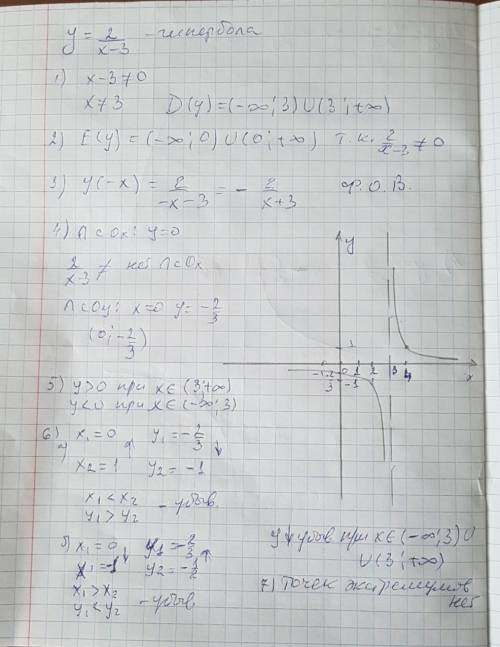 y = 2/(x-3) - гипербола
1) x-3≠0
x≠3 D(y)=(-∞;3)∪(3;+∞)
2) E(y)=(-∞;0)∪(0;+∞) т.к. 2/(x-3)≠0
3) y(-x) = 2/(-x-3) = - 2/(x+3) Ф.О.В.
4) ∩ с Ox: y=0
2/(x-3) ≠ нет ∩ с Ox
∩ с Oy: x=0 y=-2/3
(0;-2/3)
y
1
-1 -2/3 0 1 2 3 4 x
-1
5) y>0 при x∈(3;+∞)
y<0 при x∈(-∞;3)
6) а) x₁=0 ↑ y₁=-2/3 ↓
x₂=1 y₂=-1
x₁<x₂
y₁>y₂ - убыв.
б) x₁=0 ↓ y₁=-2/3 ↑
x₁=-1 y₂=-1/2
x₁>x₂
y₁<y₂ - убыв
y↓ убыв при x∈(-∞;3)∪
∪(3;+∞)
7) точек экстремумов
нет